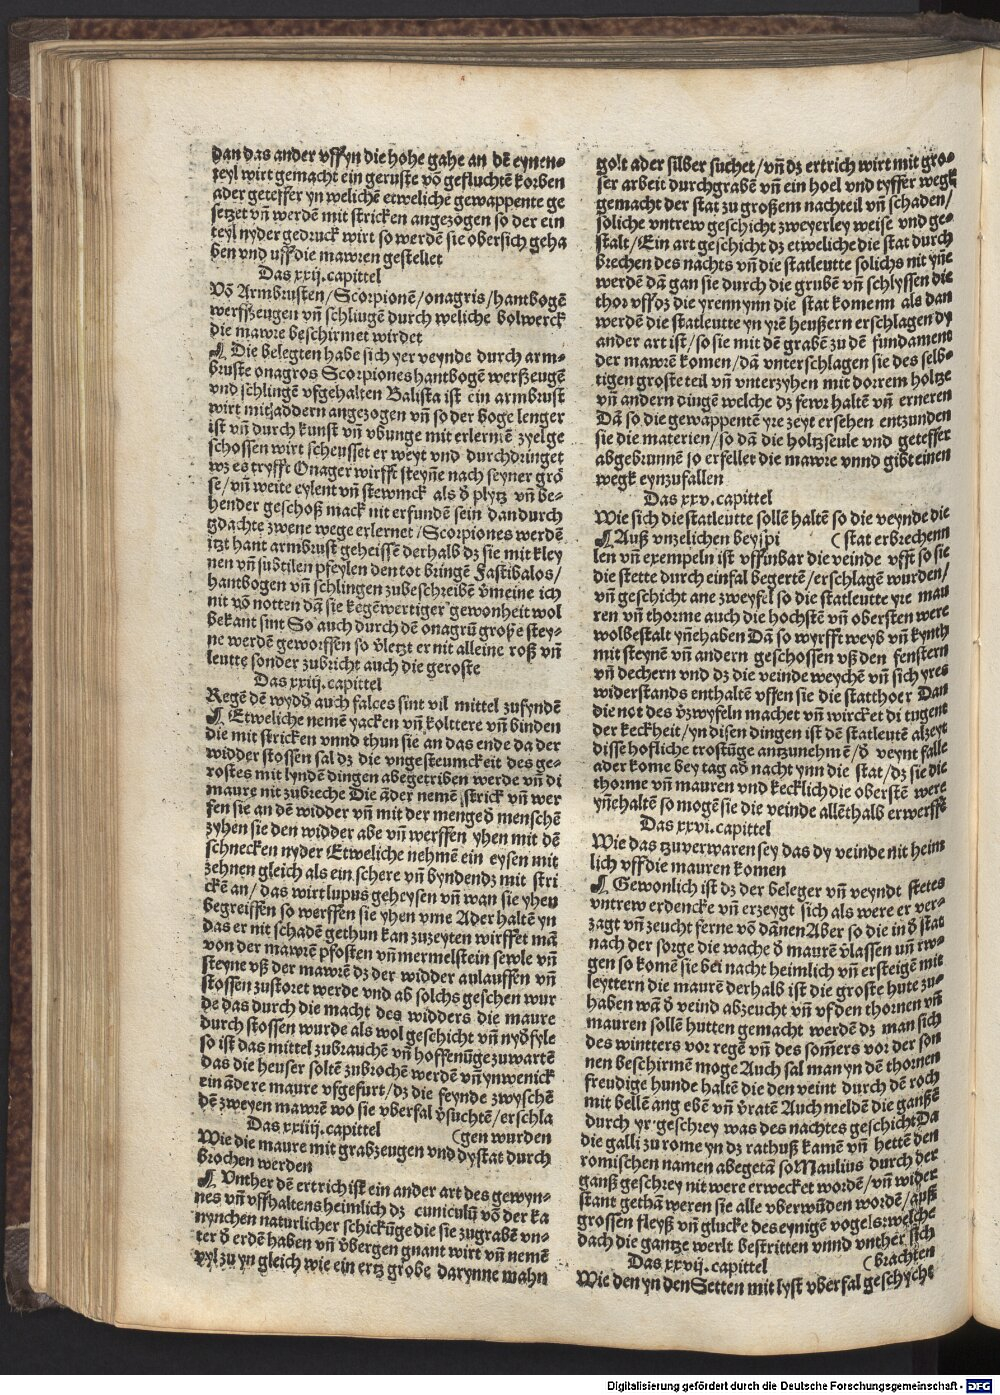 dan das ander vffyn die hohe gahe an dē eynen⸗
zeyl wirt gemacht ein geruste võ gefluchtē korben
ader geteffer yn welichē etweliche gewappente ge
setzet vñ werdē mit stricken angezogen so der ein
teyl nyder gedruck wirt so werdē sie obersich geha
ben vnd uff die mawren gestellet
Das xxij. capittel
Võ Armbrusten/Scorpionē/onagris/hantbogē
werffzeugen vñ schlingē durch weliche bolwerck
die mawre beschirmet wirdet
¶ Die belegten habē sich yer veynde durch arm⸗
bruste onagros Scorpiones hantbogē werfzeugē
vnd schlingē vfgehalten Balista ist ein armbrust
wirt mit addern angezogen vñ so der boge lenger
ist vñ durch kunst vñ vbunge mit erlernē zyelge
schossen wirt scheusset er weyt vnd durchdringet
wz es tryfft Onager wirfft steyne nach seyner grö
se/vñ weite eylent vñ stewnick als ď plytz vñ be⸗
hender geschoß mack nit erfundē sein dan durch
gdachte zwene wege erlernet/Scorpiones werdē
itzt hant armbrust geheissē derhalb dz sie mit kley
nen vñ subtilen pfeylen den tot bringē Fastibalos/
hantbogen vñ schlingen zubeschreibē v̄meine ich
nit võ notten dā sie kegēwertiger gewonheit wol
bekant sint So auch durch dē onagrū große stey⸗
ne werdē geworffen so v̄letzt er nit alleine roß vñ
leutte sonder zubricht auch die geroste
Das xxiij. capittel
Regē dē wydď auch falces sint vil mittel zufyndē
¶ Etweliche nemē yacken vñ kolttere vñ binden
die mit stricken vnnd thun sie an das ende da der
widder stossen sal dz die vngesteumckeit des ge⸗
rostes mit lyndē dingen abegetriben werde vñ di
maure nit zubreche Die āder nemē strick vñ wer
fen sie an dē widder vñ mit der menge ď menschē
zyhen sie den widder abe vñ werffen yhen mit dē
schnecken nyder Etweliche nehmē ein eysen mit
zehnen gleich als ein schere vñ byndendz mit stri
ckē an/das wirt lupus geheysen vñ wan sie yhen
begreiffen so werffen sie yhen vme Ader haltē yn
das er nit schadē gethun kan zuzeyten wirffet mā
von der mawrē pfosten vñ mermelstein sewle vñ
steyne vß der mawrē dz der widder aulauffen vñ
stossen zustoret werde vnd ab solchs geschen wur
de das durch die macht des widders die maure
durch stossen wurde als wol geschicht vñ nyďfyle
so ist das mittel zubrauchē vñ hoffenūge zuwartē
das die heuser soltē zubrochē werdē vñ ynwenick
ein ādere maure vfgefurt/dz die feynde zwyschē
dē zweyen mawrē wo sie vberfal v̄suchtē/erschla
Das xxiiij. capittel (gen wurden
Wie die maure mit grabzeugen vnd dy stat durch
brochen werden
¶ Vnther dē ertrich ist ein ander art des gewyn⸗
nes vñ vffhaltens heimlich dz cuniculū võ der ka
nynchen naturlicher schickūge die sie zugrabē vn⸗
ter ď erdē haben vñ v̄bergen gnant wirt vñ nemē
vyl zu yn gleich wie ein ertz grobe darynne mahn
golt ader silber suchet/vñ dz ertrich wirt mit gro⸗
ser arbeit durchgrabē vñ ein hoel vnd tyffer wegk
gemacht der stat zu großem nachteil vñ schaden/
soliche vntrew geschicht zweyerley weise vnd ge⸗
stalt/Ein art geschicht dz etweliche die stat durch
brechen des nachts vñ die statleutte solichs nit yñe
werdē dā gan sie durch die grubē vñ schlyssen die
thor vff dz die yren ynn die stat komenn als dan
werdē die statleutte yn yrē heußern erschlagen dy
ander art ist/so sie mit dē grabē zu dē fundament
der mawrē komen/dā vnterschlagen sie des selb⸗
tigen groste teil vñ vnterzyhen mit dorrem holtze
vñ andern dingē welche dz fewr haltē vñ erneren
Dā so die gewappentē yre zeyt ersehen entzunden
sie die materien/so dā die holtzseule vnd geteffer
abgebrunnē so erfellet die mawre vnnd gibt einen
wegk eynzufallen
Das xxv. capittel
Wie sich die statleutte sollē haltē so die veynde die
¶ Auß vnzelichen beyspi (stat erbrechenn
len vñ exempeln ist vffinbar die veinde vfft so sie
die stette durch einfal begertē/erschlagē wurden/
vñ geschicht ane zweyfel so die statleutte yre mau
ren vñ thorme auch die hochstē vñ obersten were
wolbestalt yñehaben Dā so wyrfft weyb vñ kynth
mit steynē vñ andern geschossen vß den fenstern
vñ dechern vnd dz die veinde weychē vñ sich yres
widerstands enthaltē vffen sie die statthoer Dan
die not des v̄zwyfeln machet vñ wircket di tugent
der keckheit/yn disen dingen ist dē statleutē alzeyt
disse hofliche trostūge antzunehmē/ď veynt falle
ader kome bey tag ad nacht ynn die stat/dz sie die
thorme vñ mauren vnd kecklich die oberstē were
yñehaltē so mogē sie die veinde allēthalb erwerffē
Das xxvi. capittel
Wie das tzuverwaren sey das dy veinde nit heim
lich vff die mauren komen
¶ Gewonlich ist dz der beleger vñ veyndt stetes
vntrew erdencke vñ erzeygt sich als were er ver⸗
zagt vñ zeucht ferne võ dānen Aber so die in ď stat
nach der sorge die wache ď maurē v̄lassen uñ rw⸗
gen so komē sie bei nacht heimlich vñ ersteigē mit
leyttern die maurē derhalb ist die groste hute zu⸗
haben wā ď veind abzeucht vñ vf den thornen vñ
mauren sollē hutten gemacht werdē dz man sich
des wintters vor regē vñ des som̄ers vor der son
nen beschirmē moge Auch sal man yn dē thornen
freudige hunde haltē die den veint durch dē roch
mit bellē ang ebē vñ v̄ratē Auch meldē die ganßē
durch yr geschrey was des nachtes geschicht Da
die galli zu rome yn dz rathuß kamē vñ hettē den
romischen namen abegetā so Maulius durch der
ganß geschrey nit were erwecket wordē/vñ wider
stant gethā weren sie alle vberwūden wordē/auß
grossen fleyß vñ glucke des eynigē vogels: welche
dach die gantze werlt bestritten vnnd vnther sich
Das xxvij. capittel (brachten
Wie den yn den Setten mit lyst vberfal geschycht
Digitalisierung gefördert durch die Deutsche Forschungsgemeinschaft - DFG